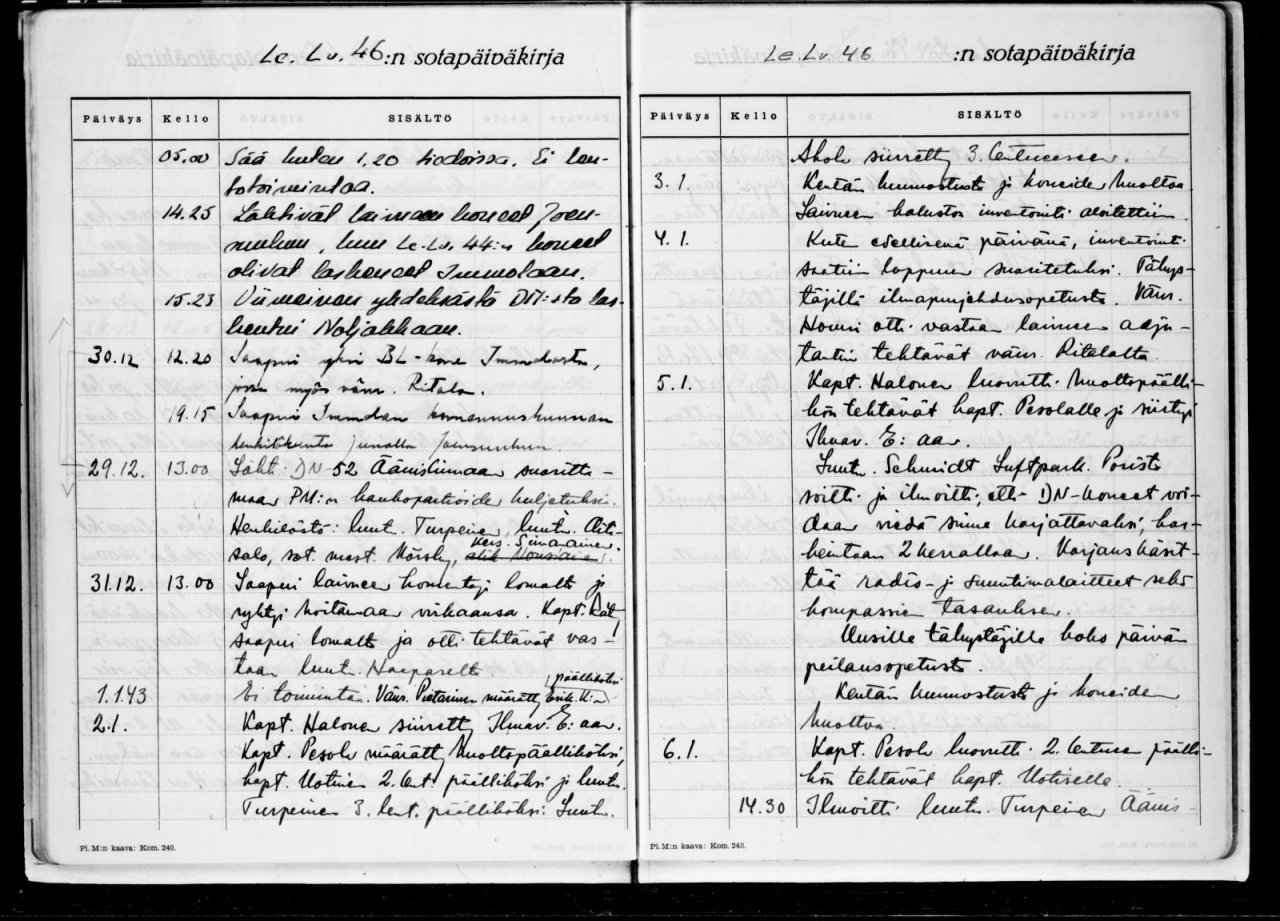 Le. Lv. 46 :n sotapäiväkirja
Päiväys Kello SISÄLTÖ
05.00 Sää kuten 1.20 tiedoissa. Ei len-
totoimintaa.
14.25 Lähtivät laivueen koneet Joen-
suuhun, kun Le. Lv. 44:n koneet
olivat laskeneet Immolaan.
15.23 Viimeinen yhdeksästä DN:sta las-
keutui Noljakkaan.
30.12 12.20 Saapui yksi BL-kone Immolasta,
jossa myös vänr. Ritala.
19.15 Saapui Immolan komennuskunnan
henkilökunta junalla Joensuuhun
29.12. 13.00 Lähti DN-52 Äänislinnaan suoritta-
maan PM:n kaukopartioiden kuljetuksia.
Henkilöstö: luutn. Turpeinen, luutn. Aito-
salo, sot. mest. Mörsky, kers. Simanainen.
31.12. 13.00 Saapui laivueen komentaja lomalta ja
ryhtyi hoitamaan virkaansa. Kapt.
saapui lomalta ja otti tehtävät vas-
taan luutn. Haaparselta
1.1.43 Ei toimintaa. Vänr. Pietarinen määrätty Esik. K:n päälliköksi
2.1. Kapt. Halonen siirretty Ilmav. E: aan.
Kapt. Pesola määrätty huoltopäälliköksi,
kapt. Uotinen 2. lent. päälliköksi ja luutn.
Turpeinen 3. lent. päälliköksi. Luutn.
Pl. M:n kaava: Kom. 240.
Le. Lv. 46 :n sotapäiväkirja
Päiväys Kello SISÄLTÖ
Ahola siirretty 3. lentueeseen.
3.1. Kentän kunnostusta ja koneiden huoltoa
Laivueen kaluston inventointi aloitettiin.
4.1. Kuten edellisenä päivänä, inventointi
saatiin loppuun suoritetuksi. Tähys-
täjillä ilmapuntausopetusta. Vänr.
Honni otti vastaan laivueen adju-
tantin tehtävät vänr. Ritalalta
5.1. Kapt. Halonen luovutti huoltopäälli-
kön tehtävät kapt. Pesolalle ja siirtyi
Ilmav. E: aan.
Luutn. Schmidt Luftpark. Porista
soitti ja ilmoitti, että DN-koneet voi-
daan viedä sinne korjattavaksi, kor-
keintaan 2 kerrallaan. Korjaus käsit-
tää radio- ja suuntimalaitteet sekä
kompassien tasauksen.
Uusille tähystäjille koko päivän
peilausopetusta.
Kentän kunnostusta ja koneiden
huoltoa.
6.1. Kapt. Pesola luovutti 2. lentueen päälli-
kön tehtävät kapt. Uotiselle.
14.30 Ilmoitti luutn. Turpeinen Äänis-
Pl. M:n kaava: Kom. 240.